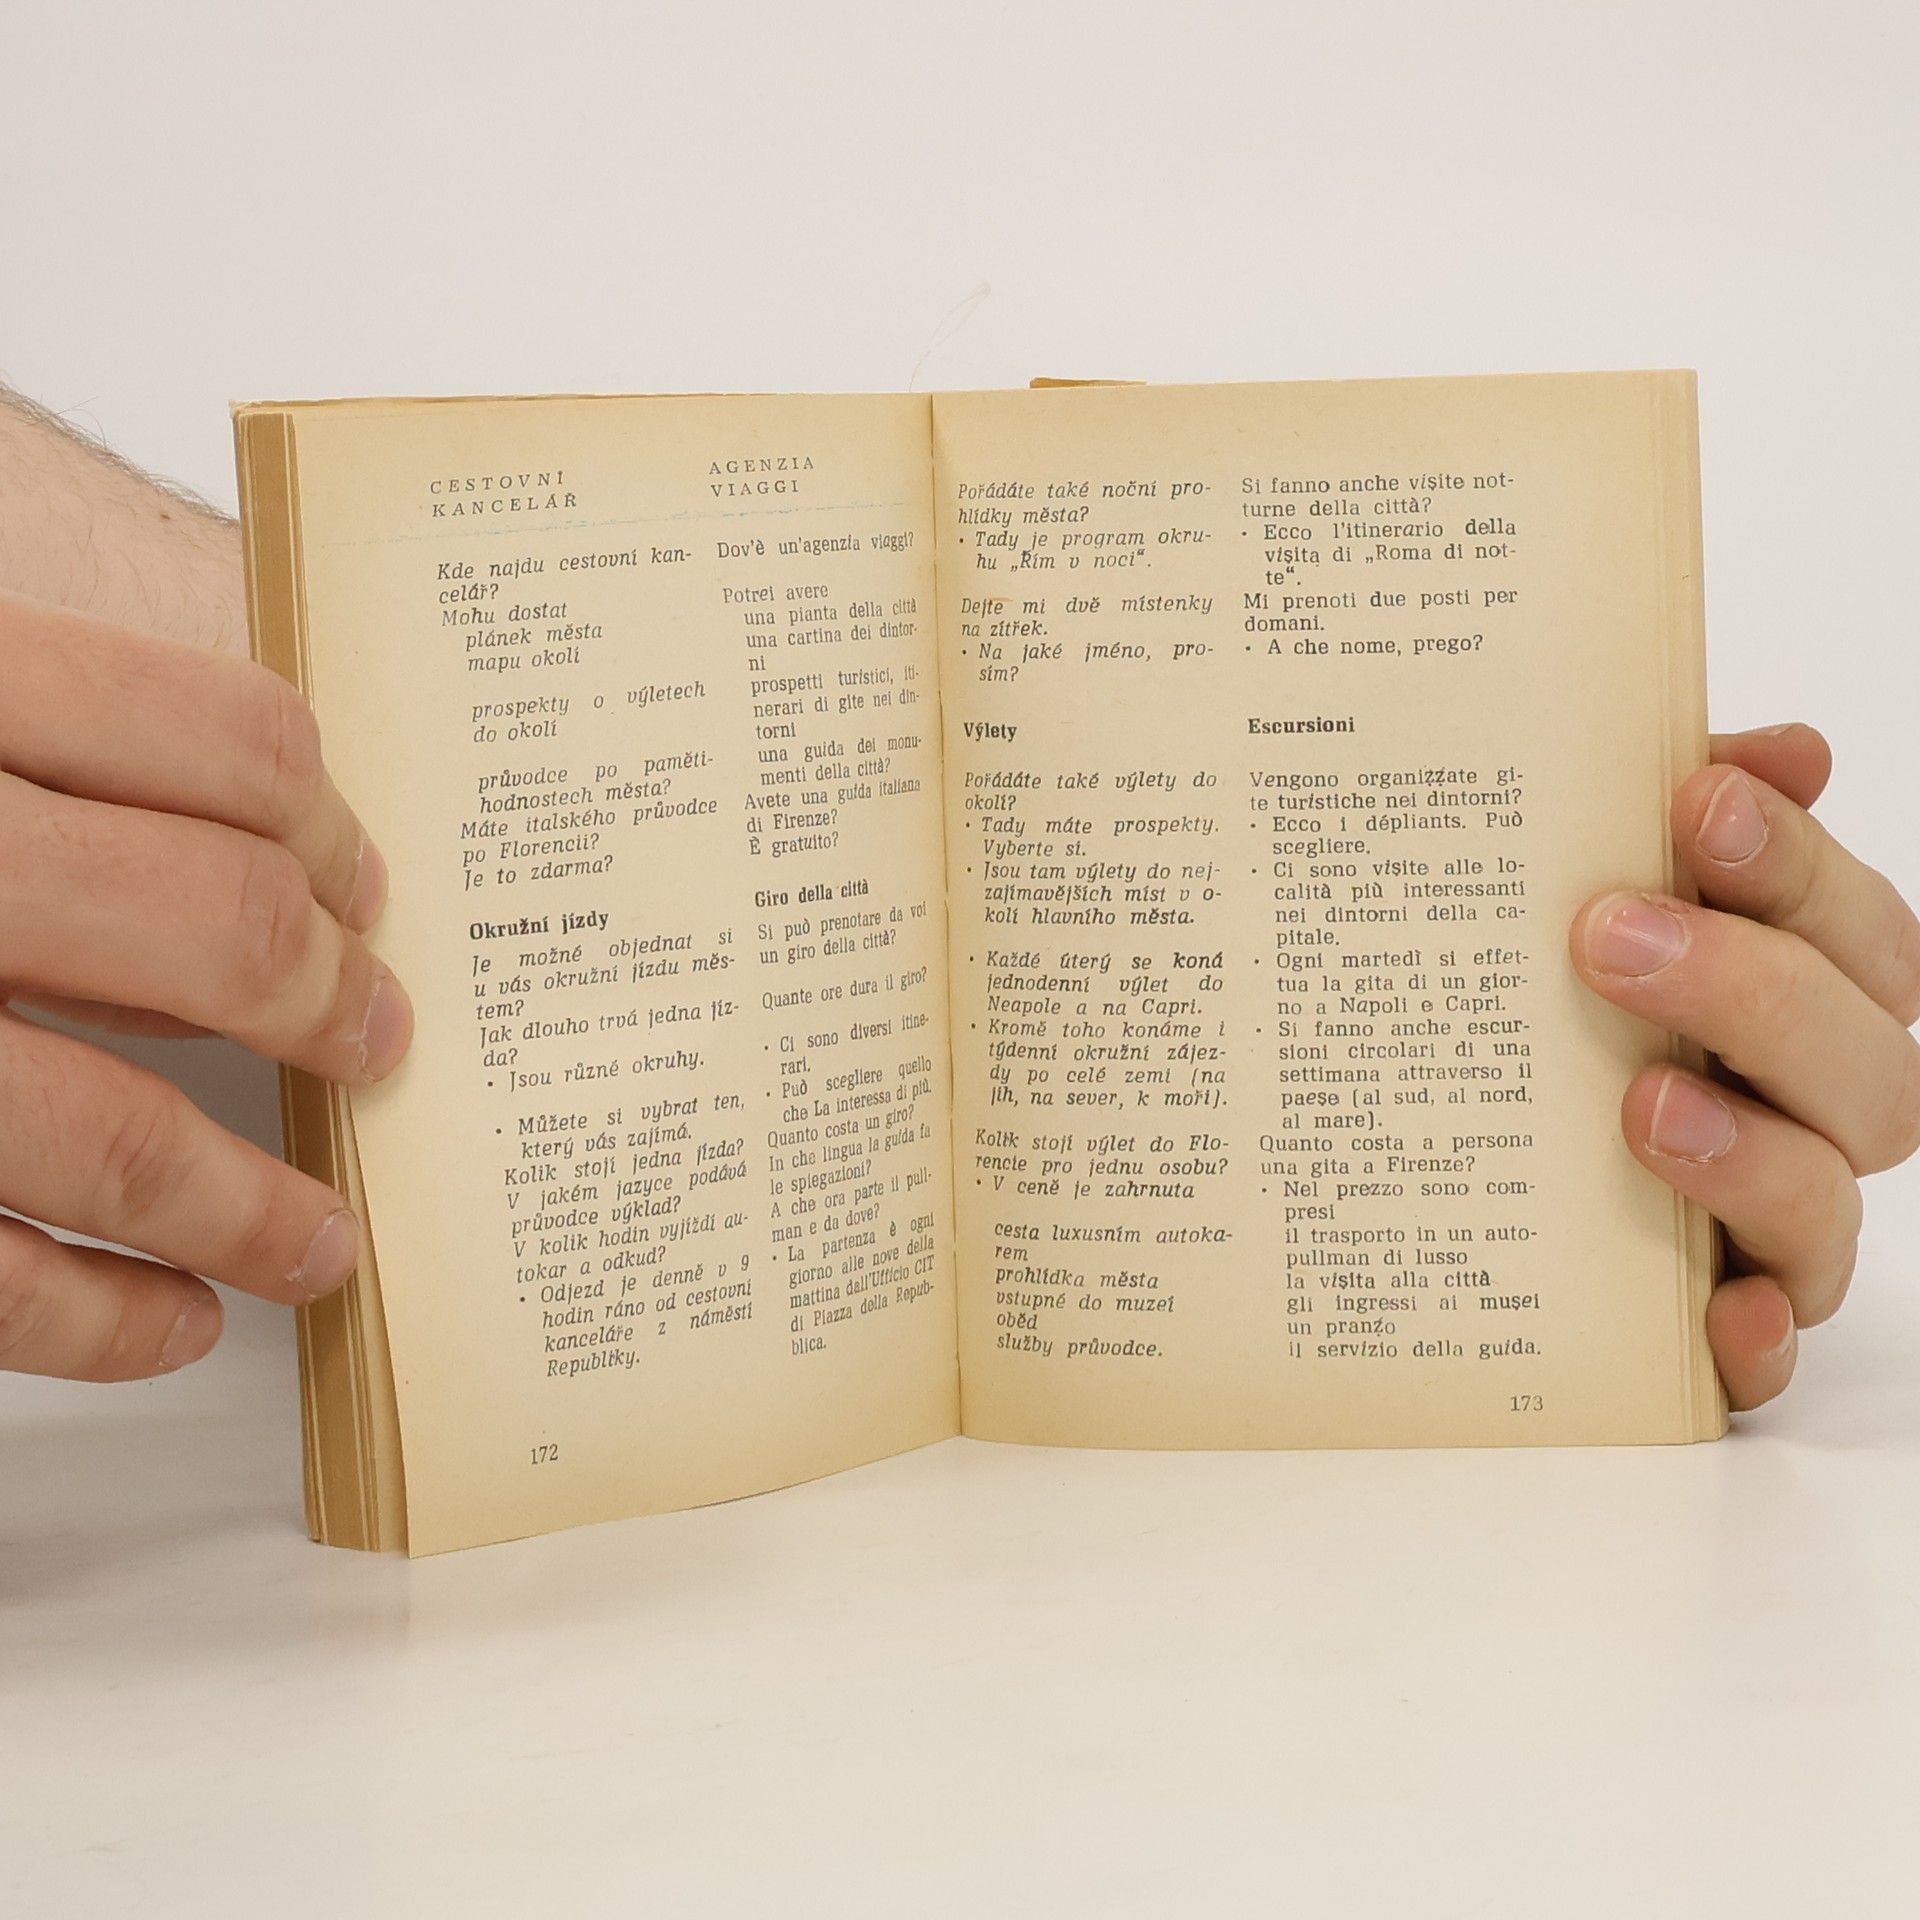 CESTOVNÍ
KANCELÁŘ
Kde najdu cestovní kan-
celář?
Mohu dostat
plánek města
mapu okolí
prospekty o výletech
do okolí
průvodce po paměti-
hodnostech města?
Máte italského průvodce
po Florencii?
Je to zdarma?
Okružní jízdy
Je možné objednat si
u vás okružní jízdu měs-
tem?
Jak dlouho trvá jedna jíz-
da?
• Jsou různé okruhy.
• Můžete si vybrat ten,
který vás zajímá.
Kolik stojí jedna jízda?
V jakém jazyce podává
průvodce výklad?
V kolik hodin vyjíždí au-
tokar a odkud?
• Odjezd je denně v 9
hodin ráno od cestovní
kanceláře z náměstí
Republiky.
172
AGENZIA
VIAGGI
Dov'è un'agenzia viaggi?
Potrei avere
una pianta della città
una cartina dei dintor-
ni
prospetti turistici, iti-
nerari di gite nei din-
torni
una guida dei monu-
menti della città?
Avete una guida italiana
di Firenze?
È gratuito?
Giro della città
Si può prenotare da voi
un giro della città?
Quante ore dura il giro?
• Ci sono diversi itine-
rari.
• Può scegliere quello
che La interessa di più.
Quanto costa un giro?
In che lingua la guida fa
le spiegazioni?
A che ora parte il pull-
man e da dove?
• La partenza è ogni
giorno alle nove della
mattina dall'Ufficio CIT
di Piazza della Repub-
blica.
Pořádáte také noční pro-
hlídky města?
• Tady je program okru-
hu „Řím v noci“.
Dejte mi dvě místenky
na zítřek.
• Na jaké jméno, pro-
sím?
Výlety
Pořádáte také výlety do
okolí?
• Tady máte prospekty.
Vyberte si.
• Jsou tam výlety do nej-
zajímavějších míst v o-
kolí hlavního města.
• Každé úterý se koná
jednodenní výlet do
Neapole a na Capri.
• Kromě toho konáme i
týdenní okružní zájez-
dy po celé zemi (na
jih, na sever, k moři).
Kolik stojí výlet do Flo-
rencie pro jednu osobu?
• V ceně je zahrnuta
cesta luxusním autoka-
rem
prohlídka města
vstupné do muzeí
oběd
služby průvodce.
Si fanno anche vişite not-
turne della città?
• Ecco l'itinerario della
vişita di „Roma di not-
te“.
Mi prenoti due posti per
domani.
• A che nome, prego?
Escursioni
Vengono organiẓẓate gi-
te turistiche nei dintorni?
• Ecco i dépliants. Può
scegliere.
• Ci sono vişite alle lo-
calità più interessanti
nei dintorni della ca-
pitale.
• Ogni martedì si effet-
tua la gita di un gior-
no a Napoli e Capri.
• Si fanno anche escur-
sioni circolari di una
settimana attraverso il
paeşe (al sud, al nord,
al mare).
Quanto costa a persona
una gita a Firenze?
• Nel prezzo sono com-
presi
il trasporto in un auto-
pullman di lusso
la vişita alla città
gli ingressi ai muşei
un pranẓo
il servizio della guida.
173